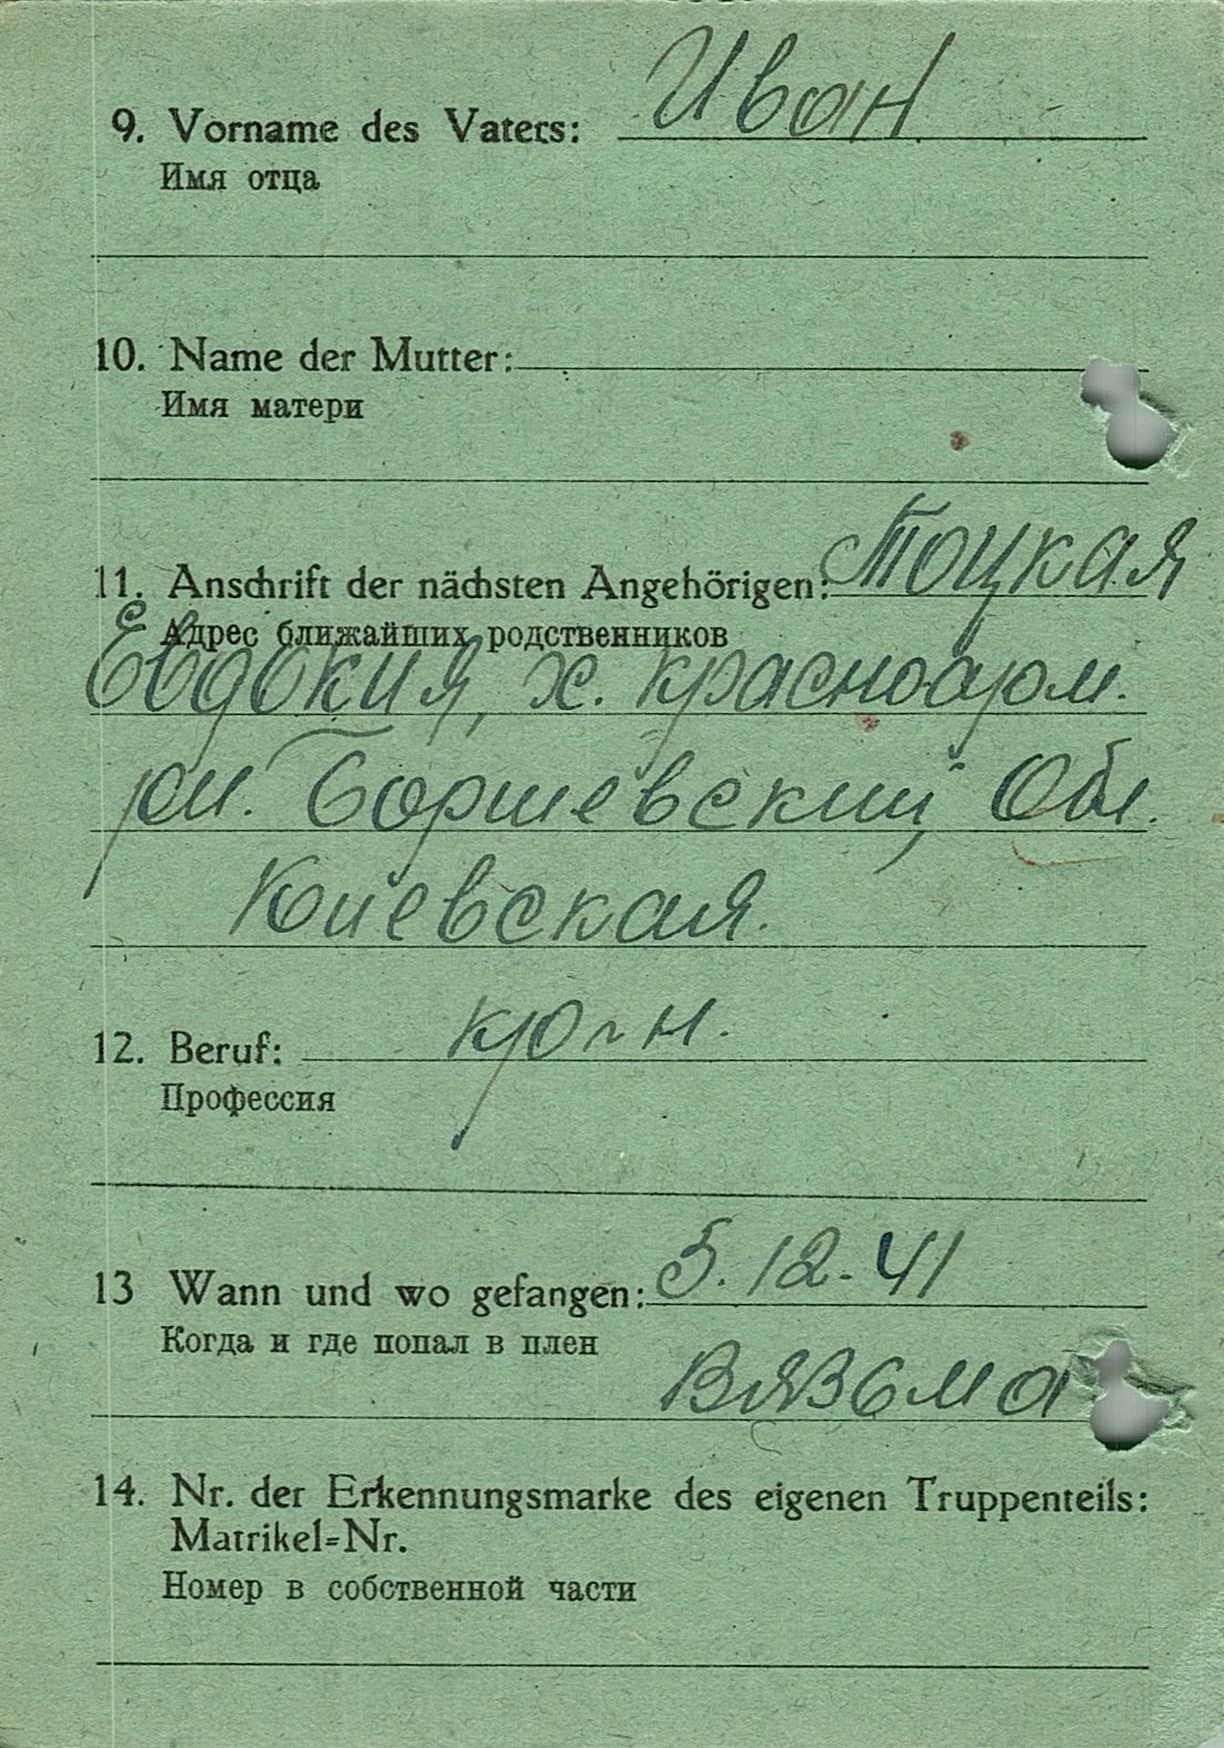 9. Vorname des Vaters: Иван
Имя отца
10. Name der Mutter:
Имя матери
11. Anschrift der nächsten Angehörigen: Тоцкая
Адрес ближайших родственников
Евдокия, х. красноарм.
рн. Боршевский, Обл.
Киевская.
12. Beruf:
Профессия
13 Wann und wo gefangen: 5.12.41
Когда и где попал в плен
Вязьма
14. Nr. der Erkennungsmarke des eigenen Truppenteils:
Matrikel=Nr.
Номер в собственной части